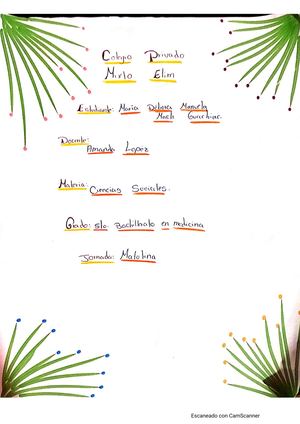 Colegio Privado
Mixto Elim
Estudiante: Maria Débora Manuela
Docente:
Amanda Lopez
Materia: Ciencias Sociales.
Grado: 5to. Bachillerato en medicina
Jornada: Matutina
Escaneado con CamScanner